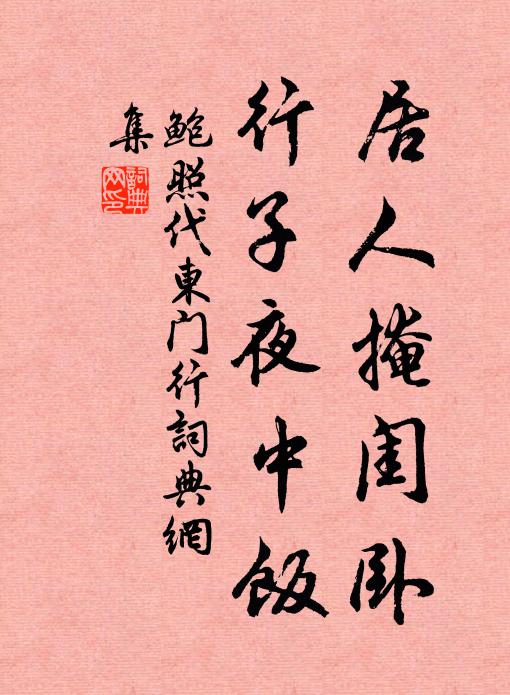 居人掩闺卧
行子夜中飯
鲍照代東门行詞典網
集
詞典
网印